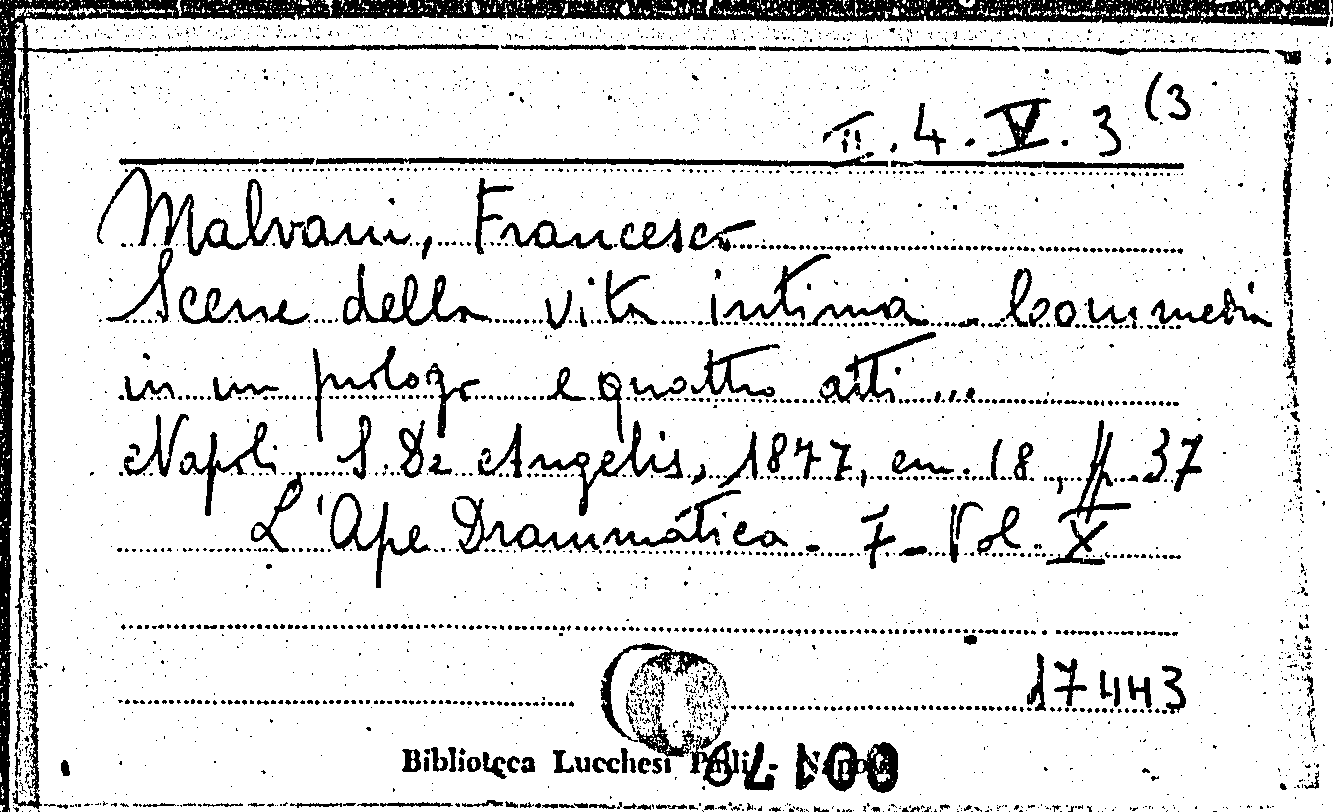 II. 4. V. 3 (3
Malvani, Francesco
Scene della vita intima. Commedia
in un prologo e quattro atti...
Napoli, S. De Angelis, 1877, em. 18, pp. 37
L'Ape Drammatica - 7 - Vol. X
17443
Biblioteca Lucchesi Palli - Napoli